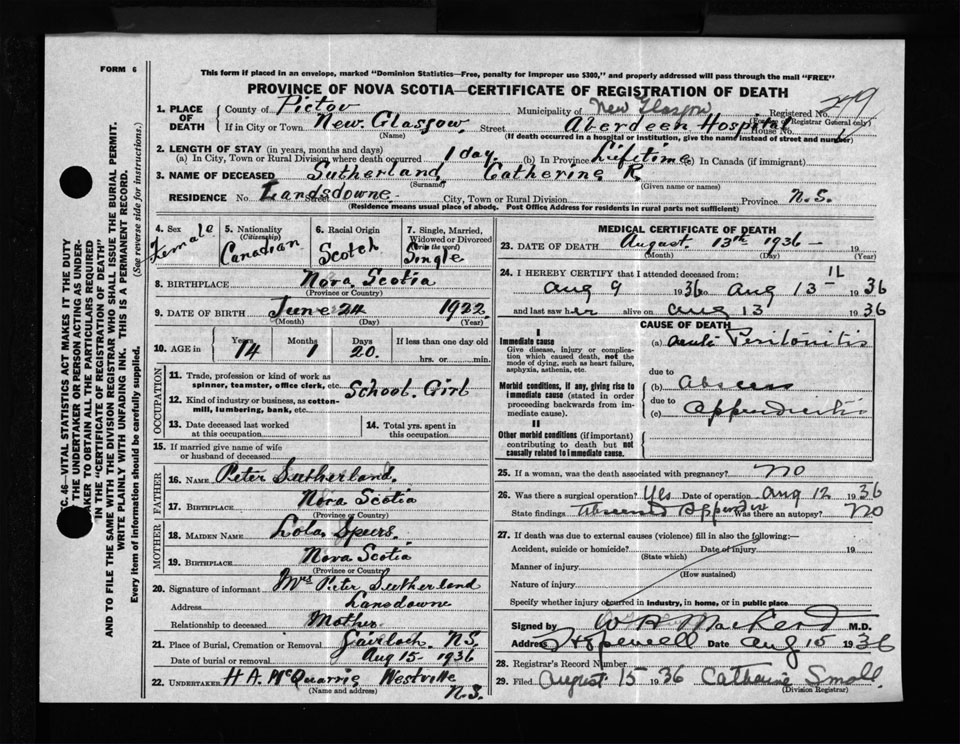 FORM 6
This form if placed in an envelope, marked "Dominion Statistics—Free, penalty for improper use $300," and properly addressed will pass through the mail "FREE"
PROVINCE OF NOVA SCOTIA—CERTIFICATE OF REGISTRATION OF DEATH
1. PLACE OF DEATH County of Pictou Municipality of New Glasgow Registered No. 249
(For use of Registrar General only)
If in City or Town New Glasgow Street Aberdeen Hospital House No.
(Name) (If death occurred in a hospital or institution, give the name instead of street and number)
2. LENGTH OF STAY (in years, months and days)
(a) In City, Town or Rural Division where death occurred 1 day. (b) In Province Lifetime (c) In Canada (if immigrant)
3. NAME OF DECEASED Sutherland Catherine R.
(Surname) (Given name or names)
RESIDENCE No. Landsdowne Street City, Town or Rural Division Province N.S.
(Residence means usual place of abode. Post Office Address for residents in rural parts not sufficient)
4. Sex Female
5. Nationality (Citizenship) Canadian
6. Racial Origin Scotch
7. Single, Married, Widowed or Divorced (Write the word) Single
8. BIRTHPLACE Nova Scotia
(Province or Country)
9. DATE OF BIRTH June 24 1922
(Month) (Day) (Year)
10. AGE in Years 14 Months 1 Days 20. If less than one day old
hrs. or min.
OCCUPATION
11. Trade, profession or kind of work as spinner, teamster, office clerk, etc. School Girl
12. Kind of industry or business, as cotton-mill, lumbering, bank, etc.
13. Date deceased last worked at this occupation
14. Total yrs. spent in this occupation
15. If married give name of wife or husband of deceased
FATHER
16. NAME Peter Sutherland.
17. BIRTHPLACE Nova Scotia
(Province or Country)
MOTHER
18. MAIDEN NAME Lola Speers.
19. BIRTHPLACE Nova Scotia
(Province or Country)
20. Signature of informant Mrs Peter Sutherland
Address Lansdowne
Relationship to deceased Mother
21. Place of Burial, Cremation or Removal Gairloch N.S.
Date of burial or removal Aug 15 1936
22. UNDERTAKER H A. McQuarrie Westville N.S.
(Name and address)
MEDICAL CERTIFICATE OF DEATH
23. DATE OF DEATH August 13th 1936 — 19
(Month) (Day) (Year)
24. I HEREBY CERTIFY that I attended deceased from:
Aug 9 1936 to Aug 13 1936
and last saw her alive on Aug 13 1936
CAUSE OF DEATH
I
Immediate cause
Give disease, injury or complication which caused death, not the mode of dying, such as heart failure, asphyxia, asthenia, etc.
(a) Acute Peritonitis
due to
Morbid conditions, if any, giving rise to immediate cause (stated in order proceeding backwards from immediate cause).
(b) Abscess
due to
(c) Appendicitis
II
Other morbid conditions (if important) contributing to death but not causally related to immediate cause.
25. If a woman, was the death associated with pregnancy? No
26. Was there a surgical operation? Yes Date of operation Aug 12 1936
State findings Abscess Appendix Was there an autopsy? No
27. If death was due to external causes (violence) fill in also the following:—
Accident, suicide or homicide? Date of injury 19
(State which)
Manner of injury
(How sustained)
Nature of injury
Specify whether injury occurred in industry, in home, or in public place
Signed by M.D.
Address Hopewell Date Aug 15 1936
28. Registrar's Record Number
29. Filed August 15 1936 Catharine Small.
(Division Registrar)
SEC. 46—VITAL STATISTICS ACT MAKES IT THE DUTY
THE UNDERTAKER OR PERSON ACTING AS UNDER-
TAKER TO OBTAIN ALL THE PARTICULARS REQUIRED
IN THE "CERTIFICATE OF REGISTRATION OF DEATH"
AND TO FILE THE SAME WITH THE DIVISION REGISTRAR WHO SHALL ISSUE THE BURIAL PERMIT.
WRITE PLAINLY WITH UNFADING INK. THIS IS A PERMANENT RECORD.
Every item of information should be carefully supplied. (See reverse side for instructions.)